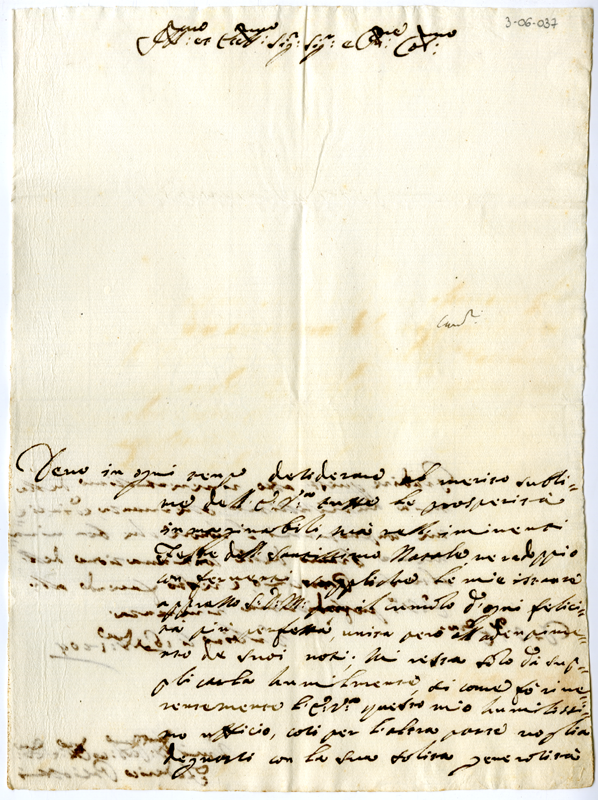 3-06-037
Ill.mo et Ecc.mo Sig.r Sig.r e P.ne Col.mo
Devo in ogni tempo desiderare al merito subli-
me dell'E.V.ra tutte le prosperità
immaginabili, mà nell'iminenti
Feste del Santissimo Natale, ne radoppio
con ferventi suppliche le mie istanze
appresso S.D.M. per il cumolo d'ogni felici-
tà più perfetta unita però all'adempime-
nto de suoi voti; Mi resta solo di sup-
plicarla humilmente, si come fò rive-
rentemente l'E.V.ra questo mio humilissi-
mo ufficio, così per l'altra parte voglia
degnarsi con la sua solita generosità